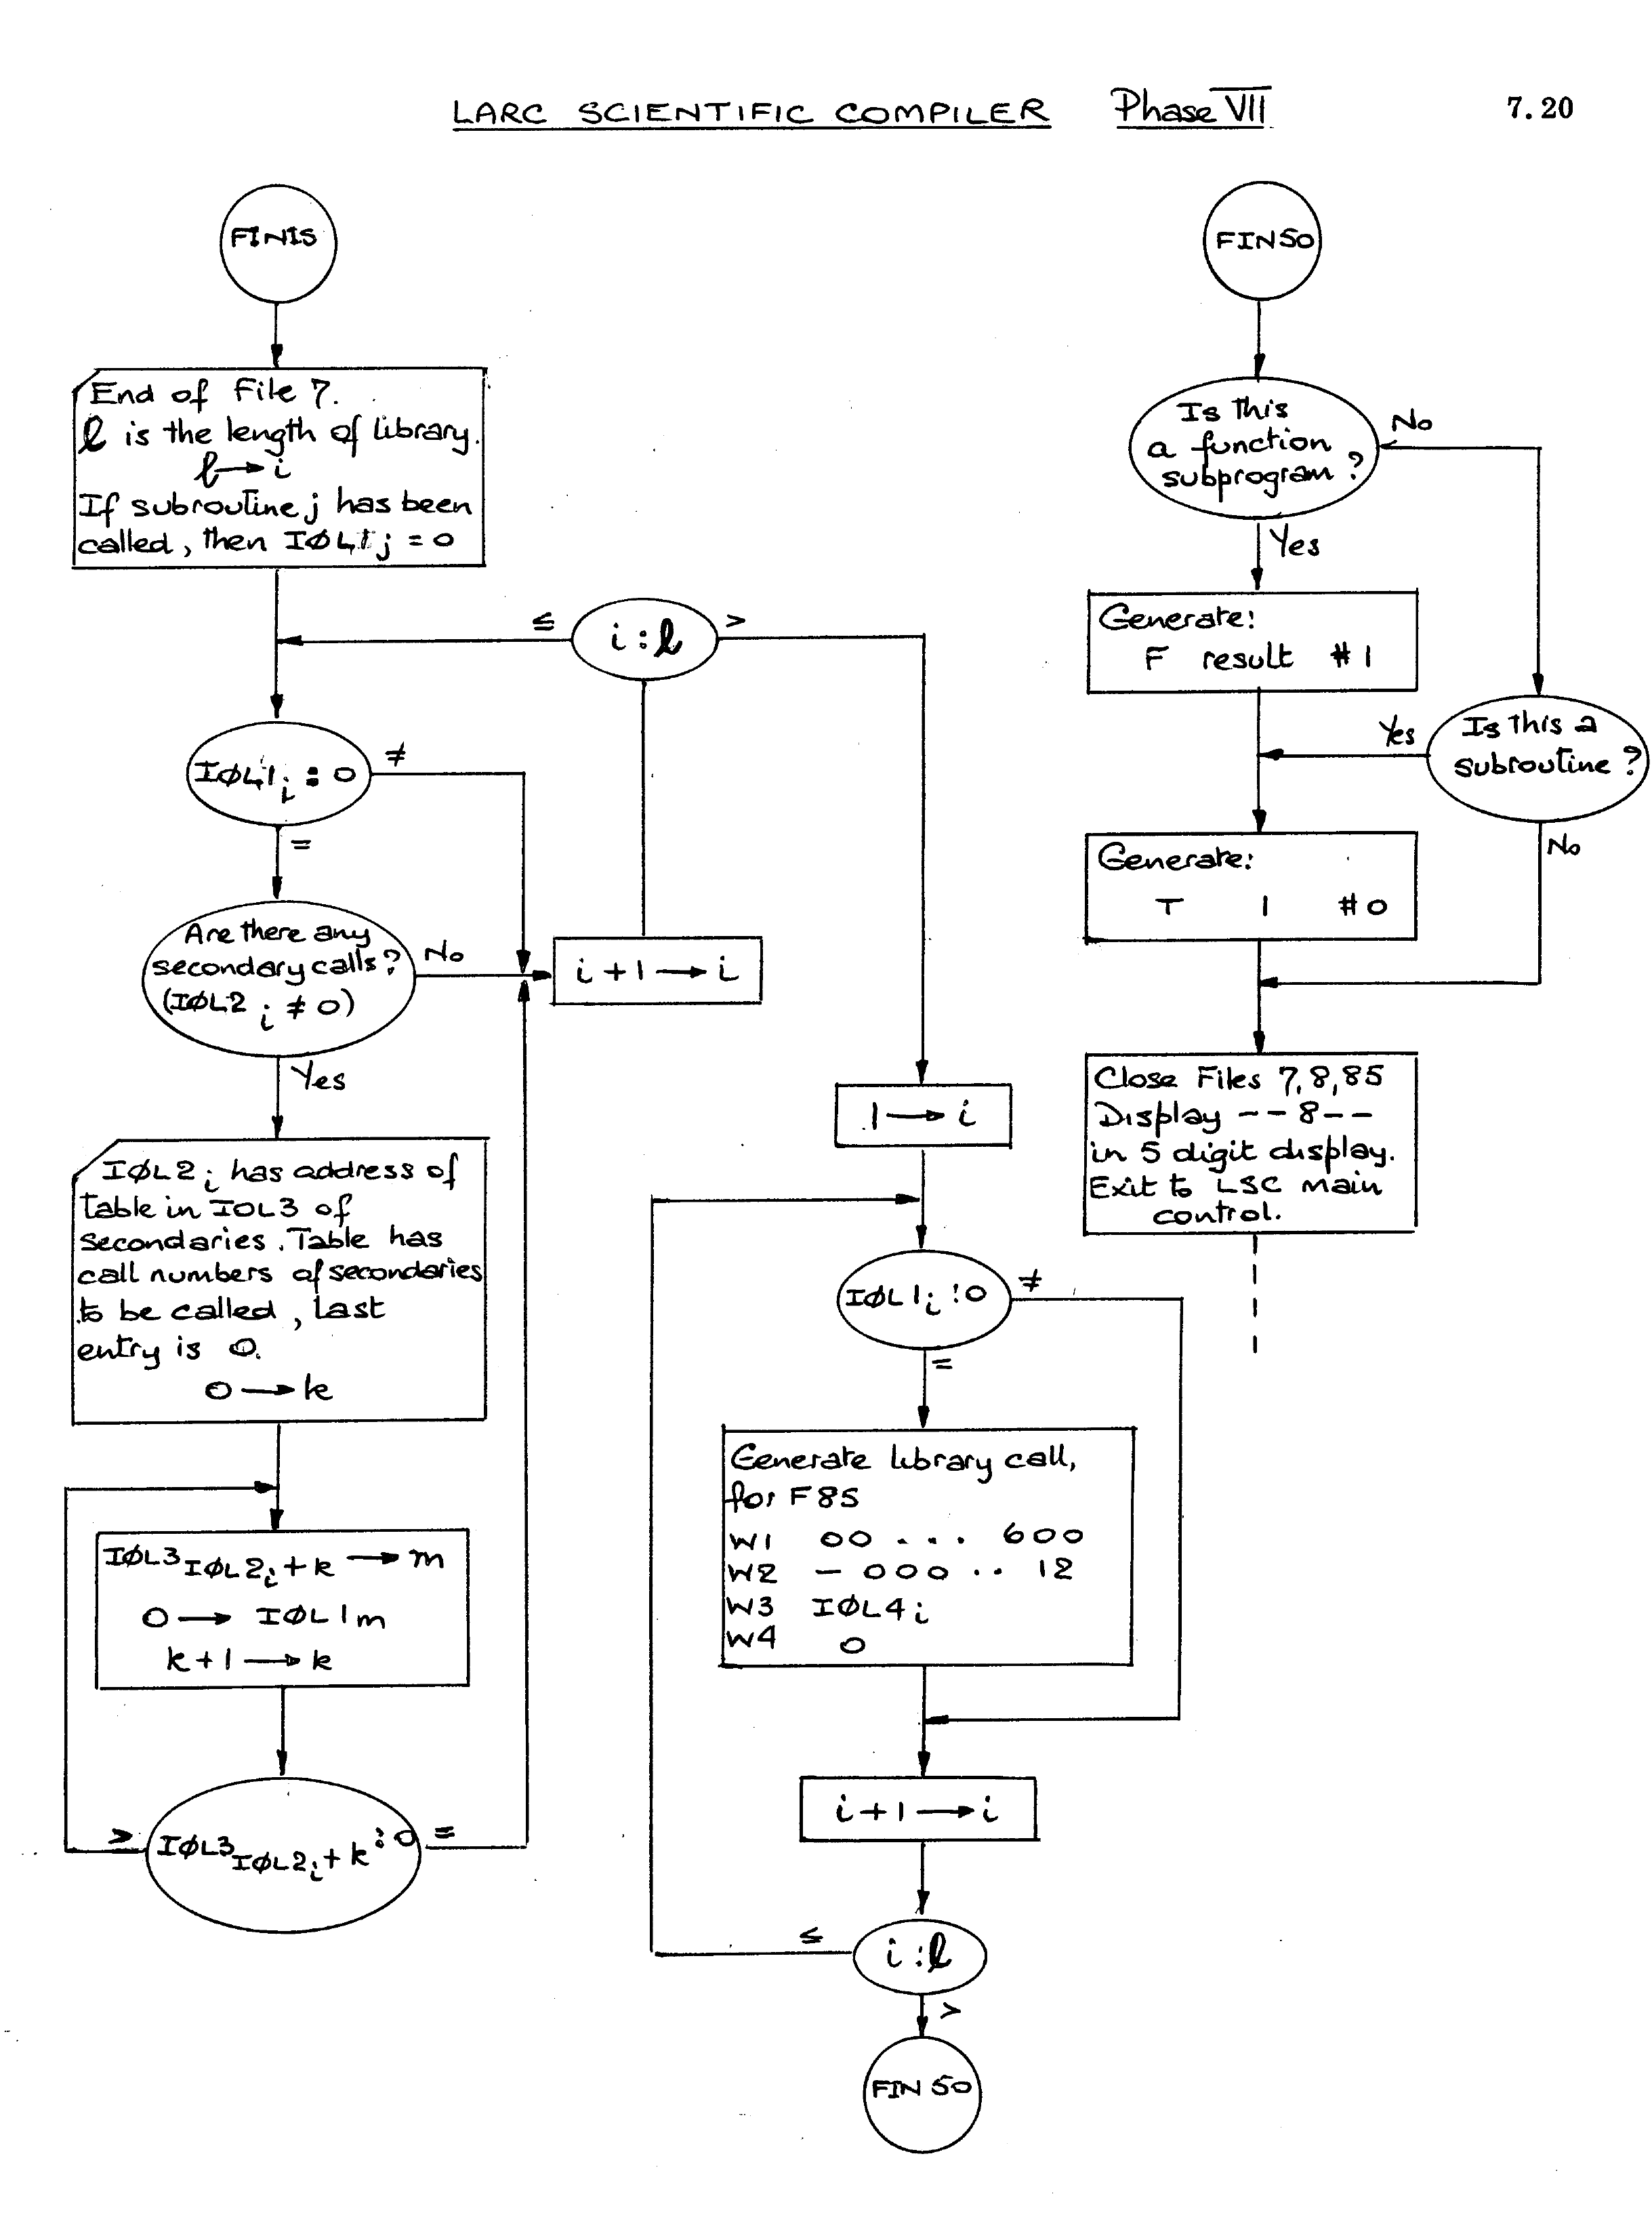 LARC SCIENTIFIC COMPILER Phase VII 7.20
FINIS
End of File 7.
ℓ is the length of library.
ℓ → i
If subroutine j has been
called, then IØL1j = 0
≤ i : ℓ >
IØL1i : 0 ≠
=
Are there any
secondary calls? No
(IØL2i ≠ 0)
Yes
i + 1 → i
IØL2i has address of
table in IOL3 of
secondaries. Table has
call numbers of secondaries
to be called, last
entry is 0.
0 → k
IØL3IØL2i+k → m
0 → IØL1m
k + 1 → k
> IØL3IØL2i+k : 0 =
1 → i
IØL1i : 0 ≠
=
Generate library call,
for F85
W1 00 . . . 600
W2 - 000 . . 12
W3 IØL4i
W4 0
i + 1 → i
≤ i : ℓ
>
FIN 50
FIN50
Is this
a function
subprogram?
No
Yes
Generate:
F result # 1
Is this a
subroutine?
Yes
No
Generate:
T 1 # 0
Close Files 7,8,85
Display --8--
in 5 digit display.
Exit to LSC main
control.